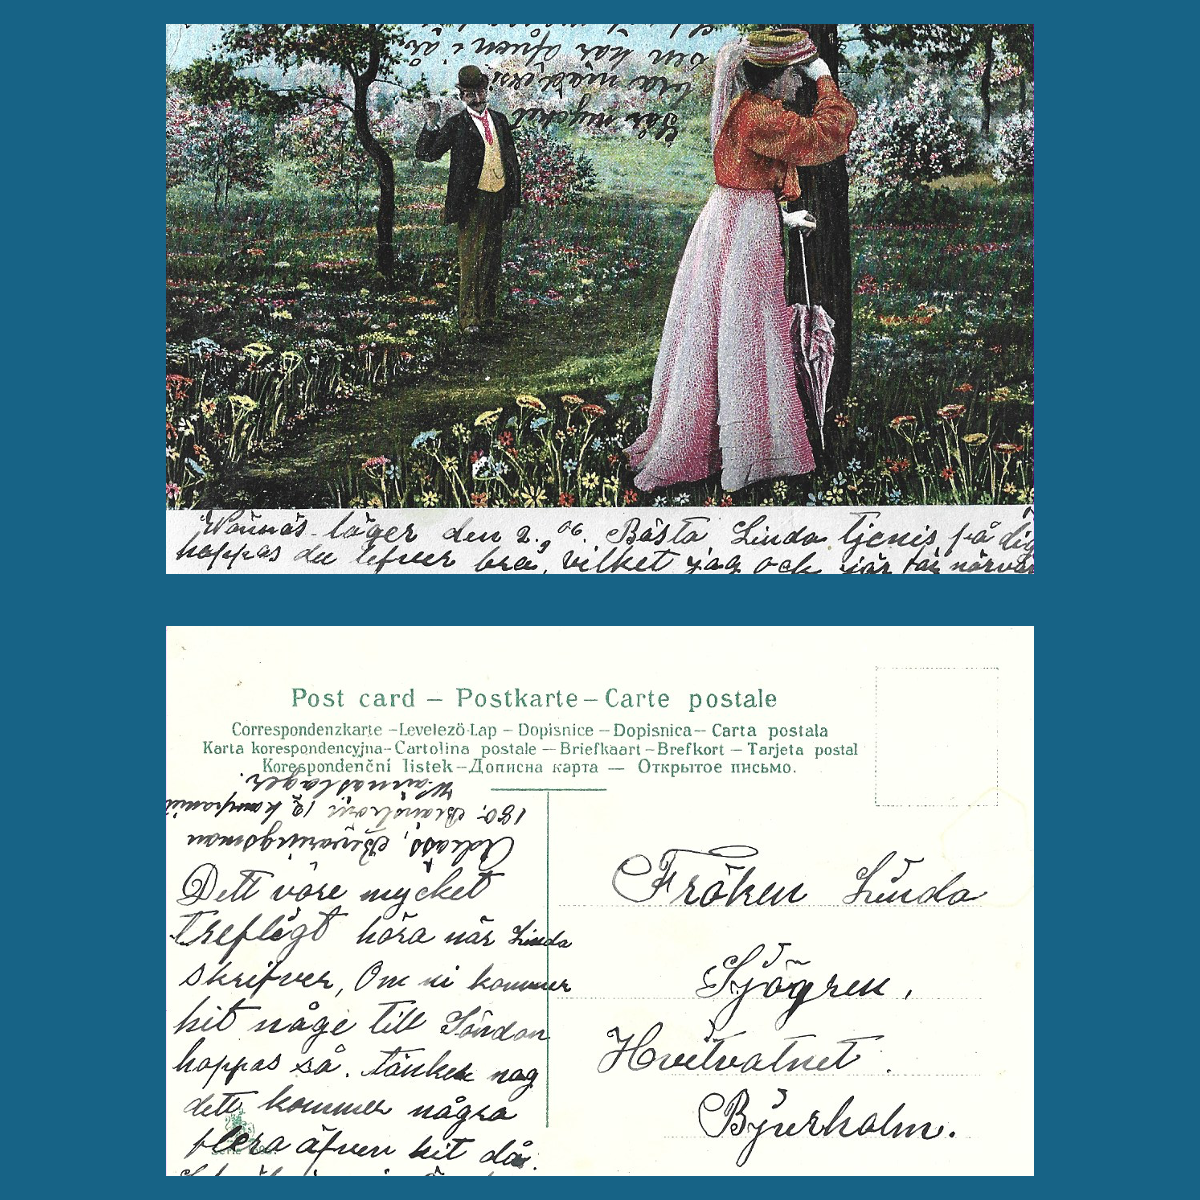 Vännäs läger den 2. 9 06. Bästa Linda tjenis på dig
hoppas du lefver bra, vilket jag och gör här närvar
så mycket
bra
sen här äfven i år
Post card – Postkarte – Carte postale
Correspondenzkarte – Levelező-Lap – Dopisnice – Dopisnica – Carta postala
Karta korespondencyjna – Cartolina postale – Briefkaart – Brefkort – Tarjeta postal
Korespondenční listek – Дописна карта — Открытое письмо.
Adräss, Beväringsman
180. 12 kompaniet
Wännäs läger.
Dett vore mycket
trefligt höra när Linda
skrifver, Om ni kommer
hit någe till Söndan
hoppas så. tänker nog
dett kommer några
flera äfven hit då.
Fröken Linda
Sjögren,
Hvitvatnet.
Bjurholm.